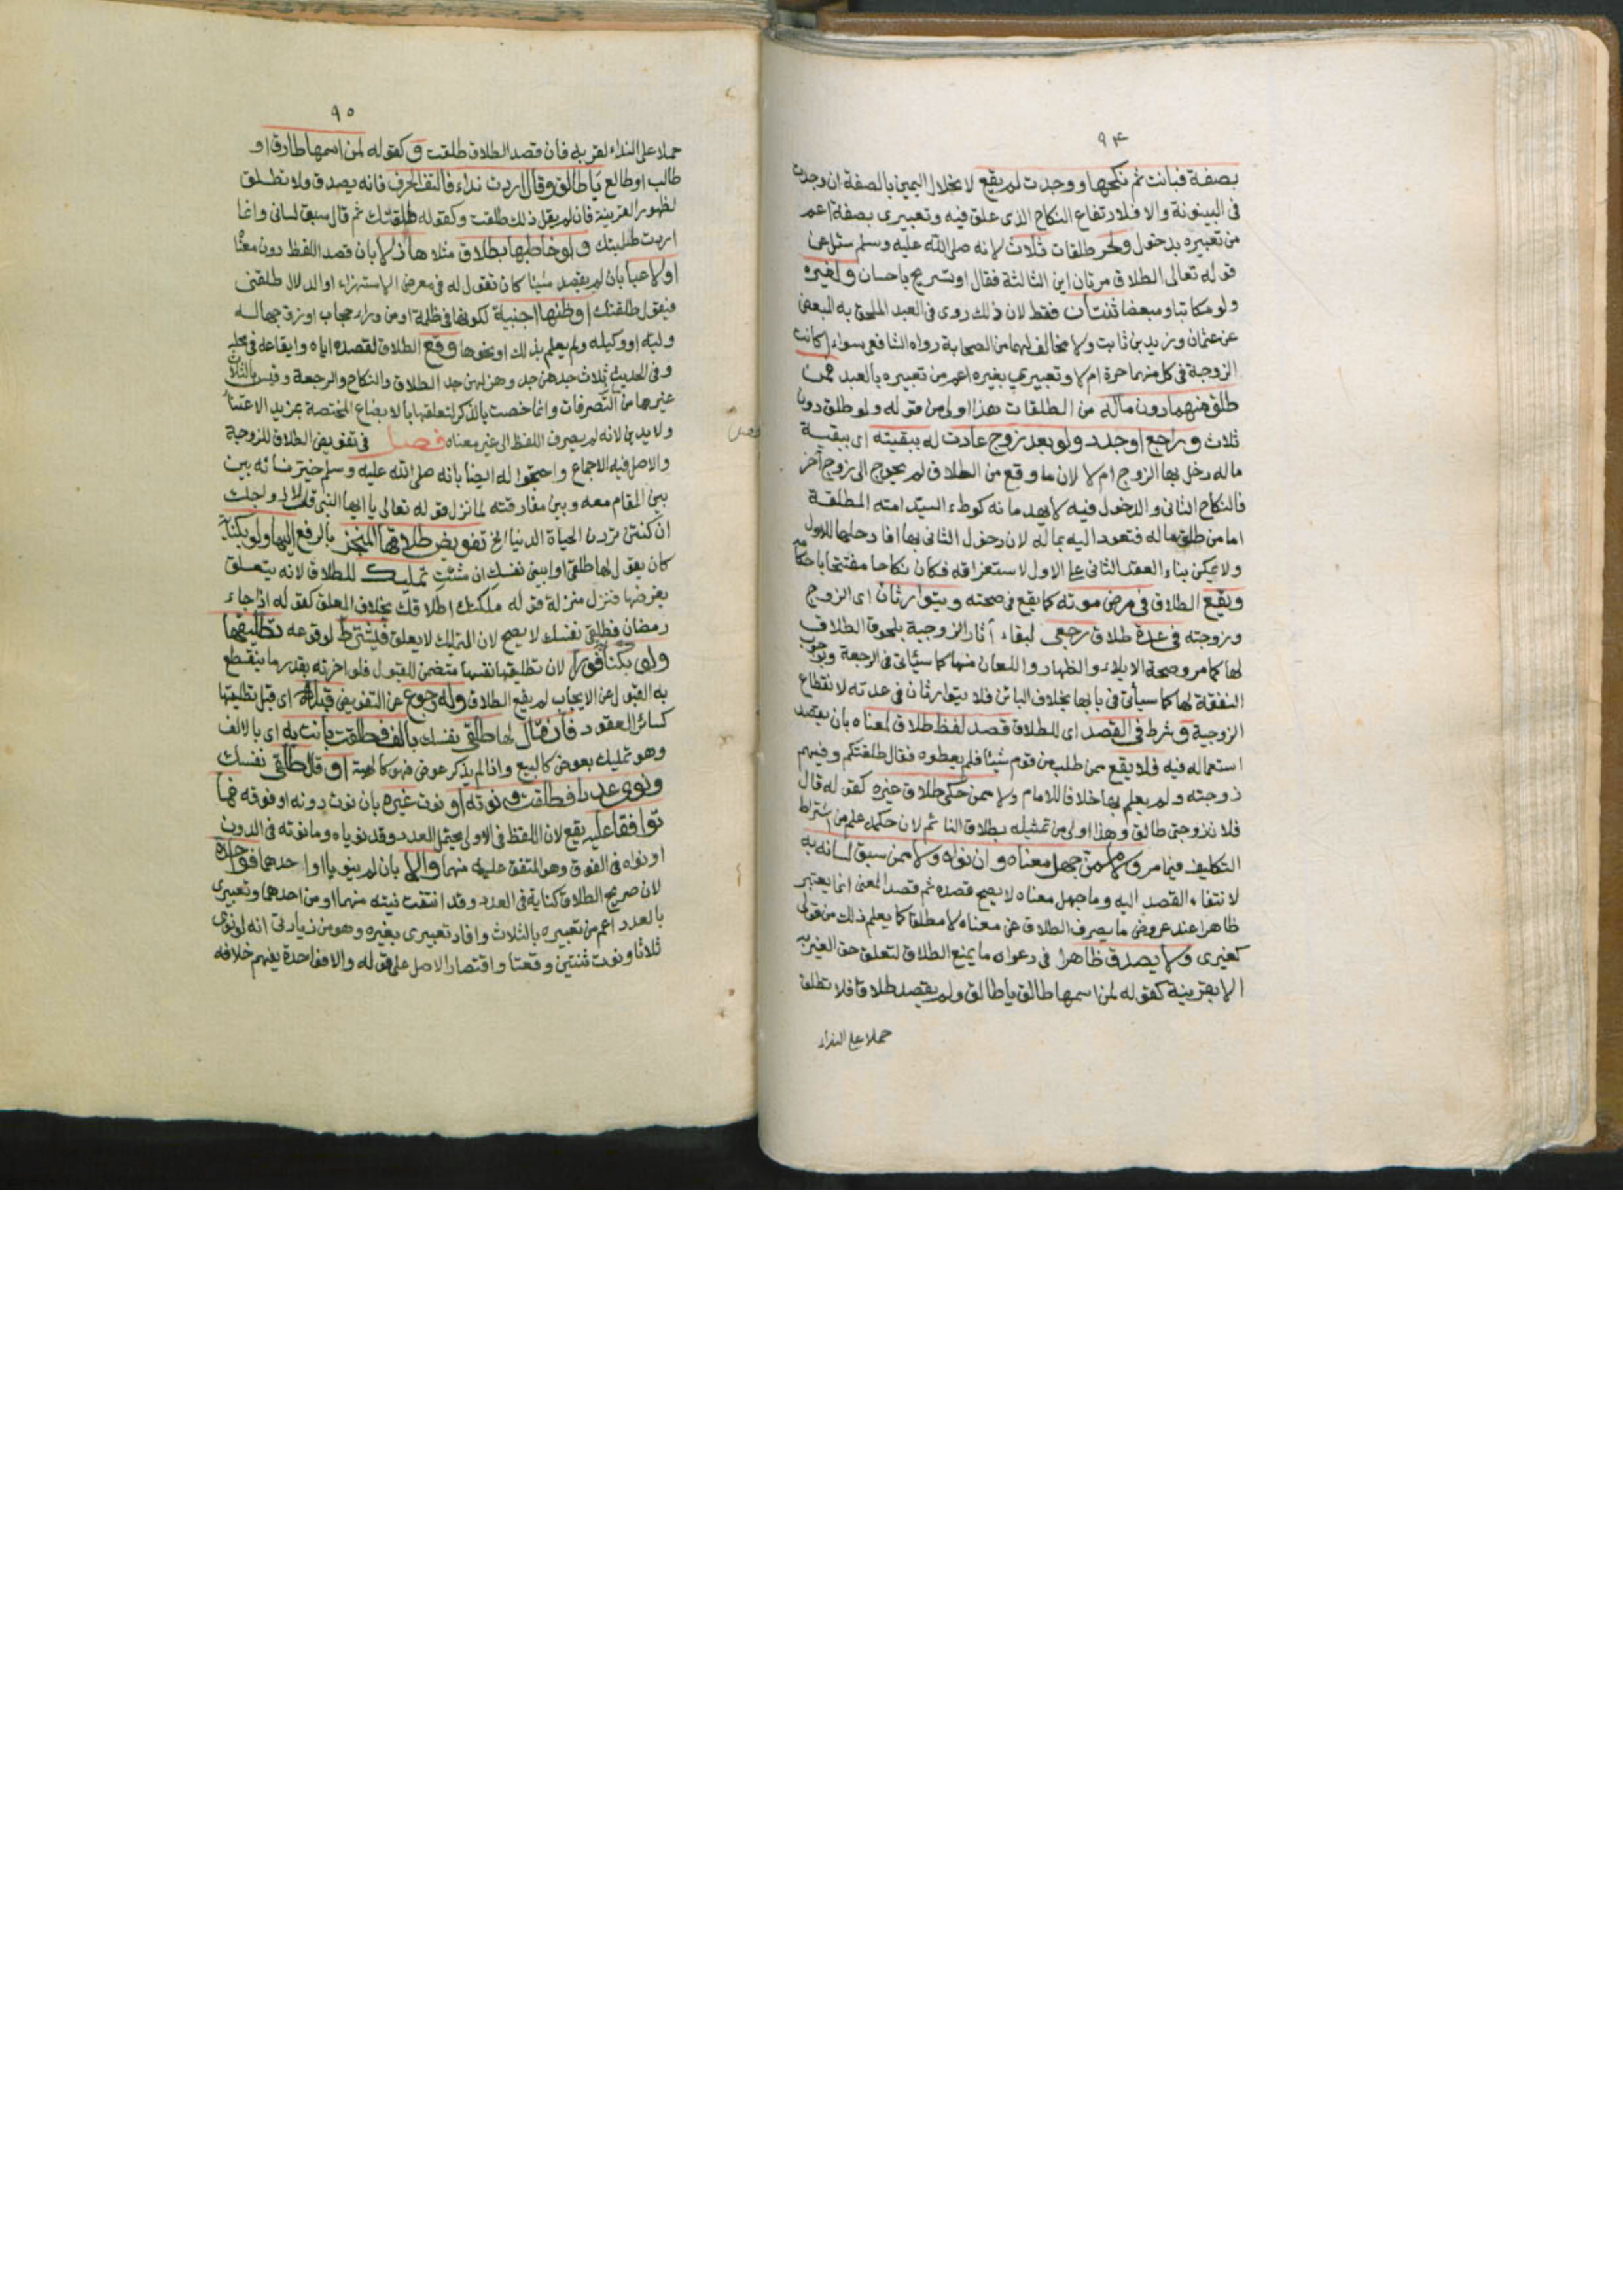 ٩٤
بصفة فبانت ثم نكحها ووجدت لم يقع لانحلال اليمين بالصفة ان وجدت
فى البينونة والا فلارتفاع النكاح الذى علق فيه وتعبيرى بصفة اعم
من تعبيره بدخول ولحر طلقات ثلاث لانه صلى الله عليه وسلم سئل عن
قوله تعالى الطلاق مرتان اين الثالثة فقال اوتسريح باحسان ولغيره
ولو مكاتبا ومبعضا ثنتان فقط لان ذلك روى فى العبد الملحق به المبعض
عن عثمان وزيد بن ثابت ولا مخالف لهما من الصحابة رواه الشافعى سواء اكانت
الزوجة فى كل منهما حرة ام لا وتعبيرى بغيره اعم من تعبيره بالعبد فمن
طلق منهما دون ماله من الطلقات هذا اولى من قوله ولو طلق دون
ثلاث وراجع اوجدد ولو بعد زوج عادت له ببقيته اى ببقية
ماله دخل بها الزوج ام لا لان ما وقع من الطلاق لم يحوج الى زوج آخر
فالنكاح الثانى والدخول فيه لا يهدمانه كوطء السيد امته المطلقة
اما من طلق ماله فتعود اليه بماله لان دخول الثانى بها افاد حلها للاول
ولا يمكن بناء العقد الثانى على الاول لاستغراقه فكان نكاحا مفتتحا باحكامه
ويقع الطلاق فى مرض موته كما يقع فى صحته ويتوارثان اى الزوج
وزوجته فى عدة طلاق رجعى لبقاء آثار الزوجية بلحوق الطلاق
لها كما مر وصحة الايلاء والظهار واللعان منها كما سيأتى فى الرجعة وبوجوب
النفقة لها كما سيأتى فى بابها بخلاف البائن فلا يتوارثان فى عدته لانقطاع
الزوجية وشرط فى القصد اى للطلاق قصد لفظ طلاق لمعناه بان يقصد
استعماله فيه فلا يقع ممن طلب من قوم شيئا فلم يعطوه فقال طلقتكم وفيهم
زوجته ولم يعلم بها خلافا للامام ولا ممن حكى طلاق غيره كقوله قال
فلان زوجتى طالق وهذا اولى من تمثيله بطلاق النائم لان حكمه علم من اشتراط
التكليف فيما مر ولا ممن جهل معناه وان نواه ولا ممن سبق لسانه به
لانتفاء القصد اليه وما جهل معناه لا يصح قصده ثم قصد المعنى انما يعتبر
ظاهرا عند عروض ما يصرف الطلاق عن معناه لا مطلقا كما يعلم ذلك من قولى
كغيرى ولا يصدق ظاهرا فى دعواه ما يمنع الطلاق لتعلق حق الغير به
الا بقرينة كقوله لمن اسمها طالق يا طالق ولم يقصد طلاقا فلا تطلق
حملا على النداء
٩٥
حملا على النداء لقربه فان قصد الطلاق طلقت وكقوله لمن اسمها طارق او
طالب او طالع يا طالق وقال اردت نداء فالتف الحرف فانه يصدق ولا تطلق
لظهور القرينة فان لم يقل ذلك طلقت وكقوله طلقتك ثم قال سبق لسانى وانما
اردت طلبتك ولو خاطبها بطلاق مثلا هازلا بان قصد اللفظ دون معناه
او لاعبا بان لم يقصد شيئا كان تقول له فى معرض الاستهزاء او الدلال طلقنى
فيقول طلقتك او ظنها اجنبية لكونها فى ظلمة او من وراء حجاب او زوجها له
وليه او وكيله ولم يعلم بذلك او نحوها وقع الطلاق لقصده اياه وايقاعه فى محله
وفى الحديث ثلاث جدهن جد وهزلهن جد الطلاق والنكاح والرجعة وقيس بالثلاث
غيرها من التصرفات وانما خصت بالذكر لتعلقها بالابضاع المختصة بمزيد الاعتناء
ولا يدين لانه لم يصرف اللفظ الى غير معناه فصل فى تفويض الطلاق للزوجة
والاصل فيه الاجماع واحتجوا له ايضا بانه صلى الله عليه وسلم خير نسائه بين
بين المقام معه وبين مفارقته لما نزل قوله تعالى يا ايها النبى قل لازواجك
ان كنتن تردن الحياة الدنيا الخ تفويض طلاقها المنجز بالرفع اليها ولو بكناية
كان يقول لها طلقى او ابينى نفسك ان شئت تمليك للطلاق لانه يتعلق
بغرضها فنزل منزلة قوله ملكتك اطلاقك بخلاف المعلق كقوله اذا جاء
رمضان فطلقى نفسك لا يصح لان التمليك لا يعلق فيشترط لوقوعه تطليقها
ولو بكناية فورا لان تطليقها نفسها متضمن للقبول فلو اخرته بقدر ما ينقطع
به القبول عن الايجاب لم يقع الطلاق وله رجوع عن التفويض قبله اى قبل تطليقها
كسائر العقود فان قال لها طلقى نفسك بالف فطلقت بانت به اى بالالف
وهو تمليك بعوض كالبيع واذا لم يذكر عوض فهو كالهبة او قال طلقى نفسك
ونوى عددا فطلقت ونوته او نوت غيره بان نوت دونه او فوقه فما
توافقا عليه يقع لان اللفظ فى الاولى يحتمل العدد وقد نوياه وما نوته فى الدون
او نواه فى الفوق وهو المتفق عليه منهما والا بان لم ينويا او احدهما فواحدة
لان صريح الطلاق كناية فى العدد وقد انتفت نيته منهما او من احدهما وتعبيرى
بالعدد اعم من تعبيره بالثلاث وافاد تعبيرى بغيره وهو من زيادتى انه لو نوى
ثلاثا ونوت ثنتين وقعتا واقتصار الاصل على قوله والا فواحدة يفهم خلافه